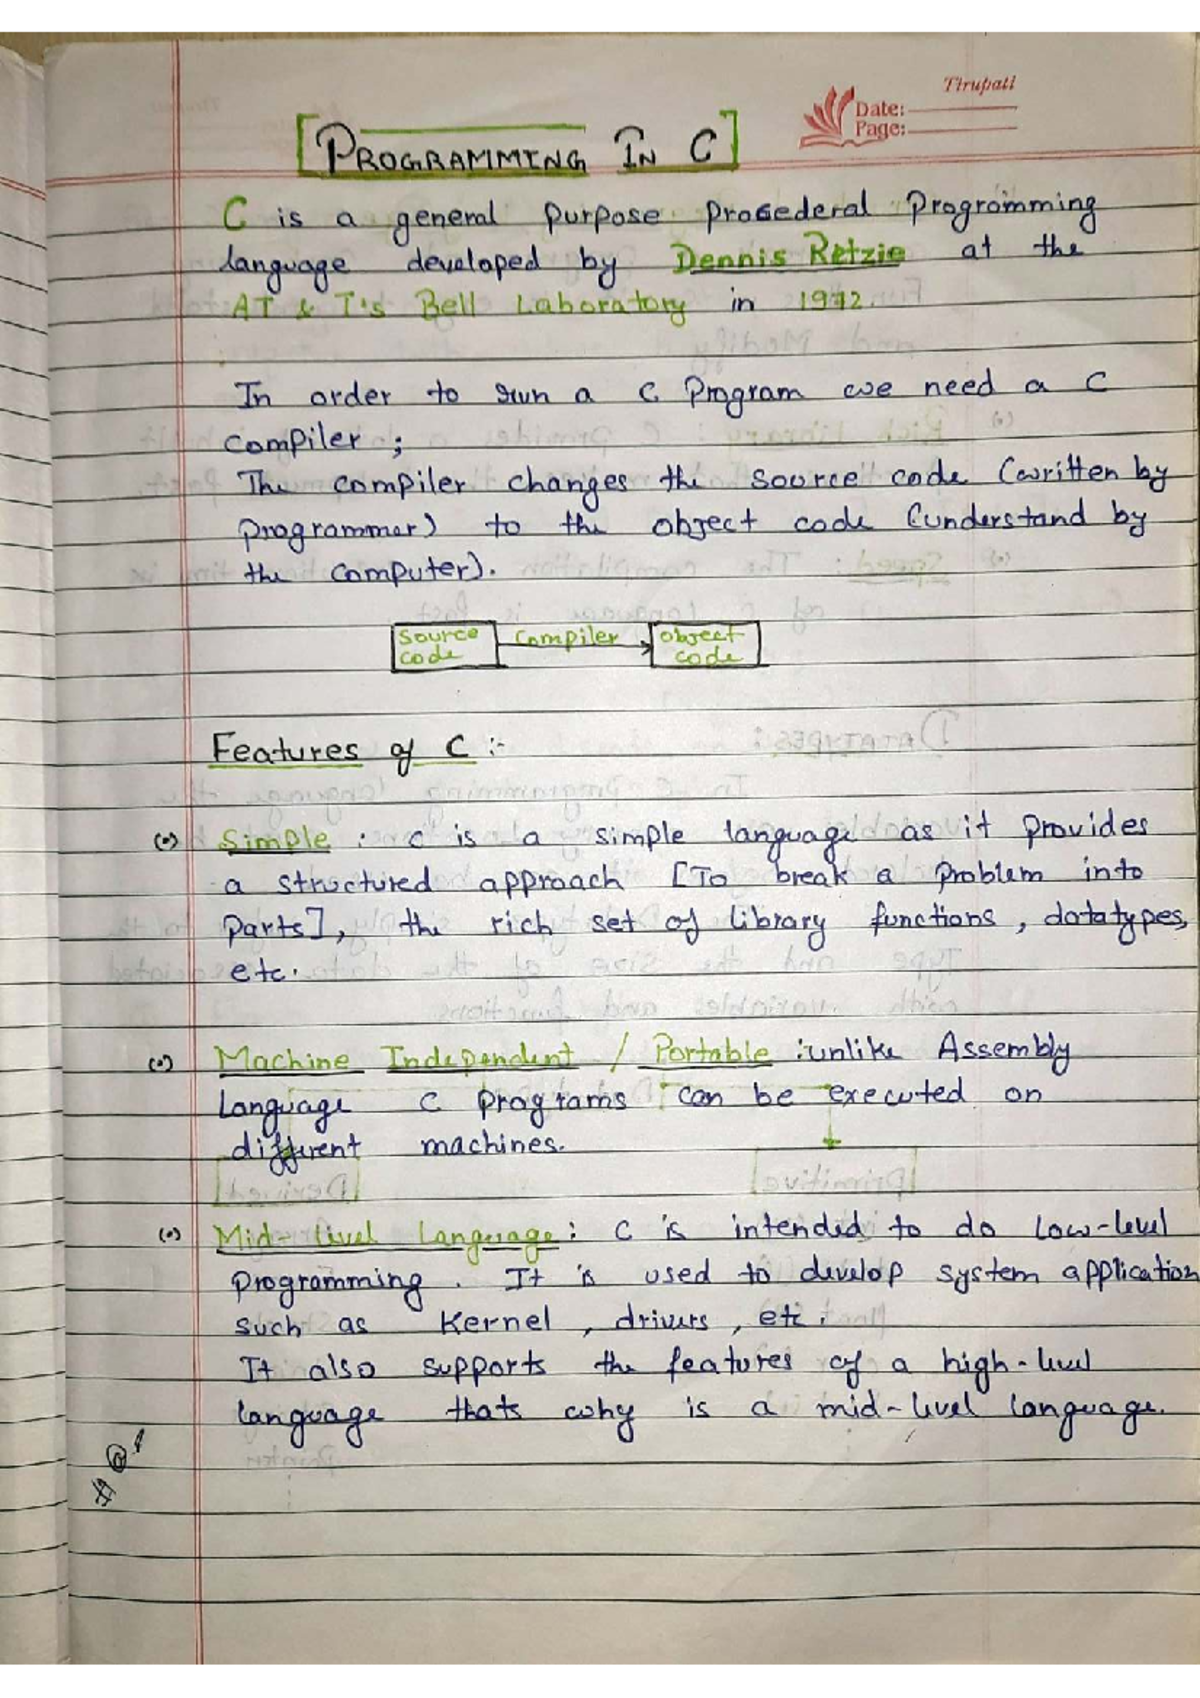 Tirupati
Date:
Page:
[PROGRAMMING IN C]
C is a general purpose procederal Programming
language developed by Dennis Retzie at the
AT & T's Bell Laboratory in 1972.
In order to run a C Program we need a C
compiler ;
The compiler changes the source code (written by
programmer) to the object code (understand by
the computer).
Source code Compiler object code
Features of C :-
(•) Simple : C is a simple language as it provides
a structured approach [To break a problem into
parts], the rich set of library functions, datatypes,
etc.
(•) Machine Independent / Portable : unlike Assembly
Language C programs can be executed on
different machines.
(•) Mid-level Language : C is intended to do low-level
programming. It is used to develop system application
such as Kernel, drivers, etc.
It also supports the features of a high-level
language thats why is a mid-level language.